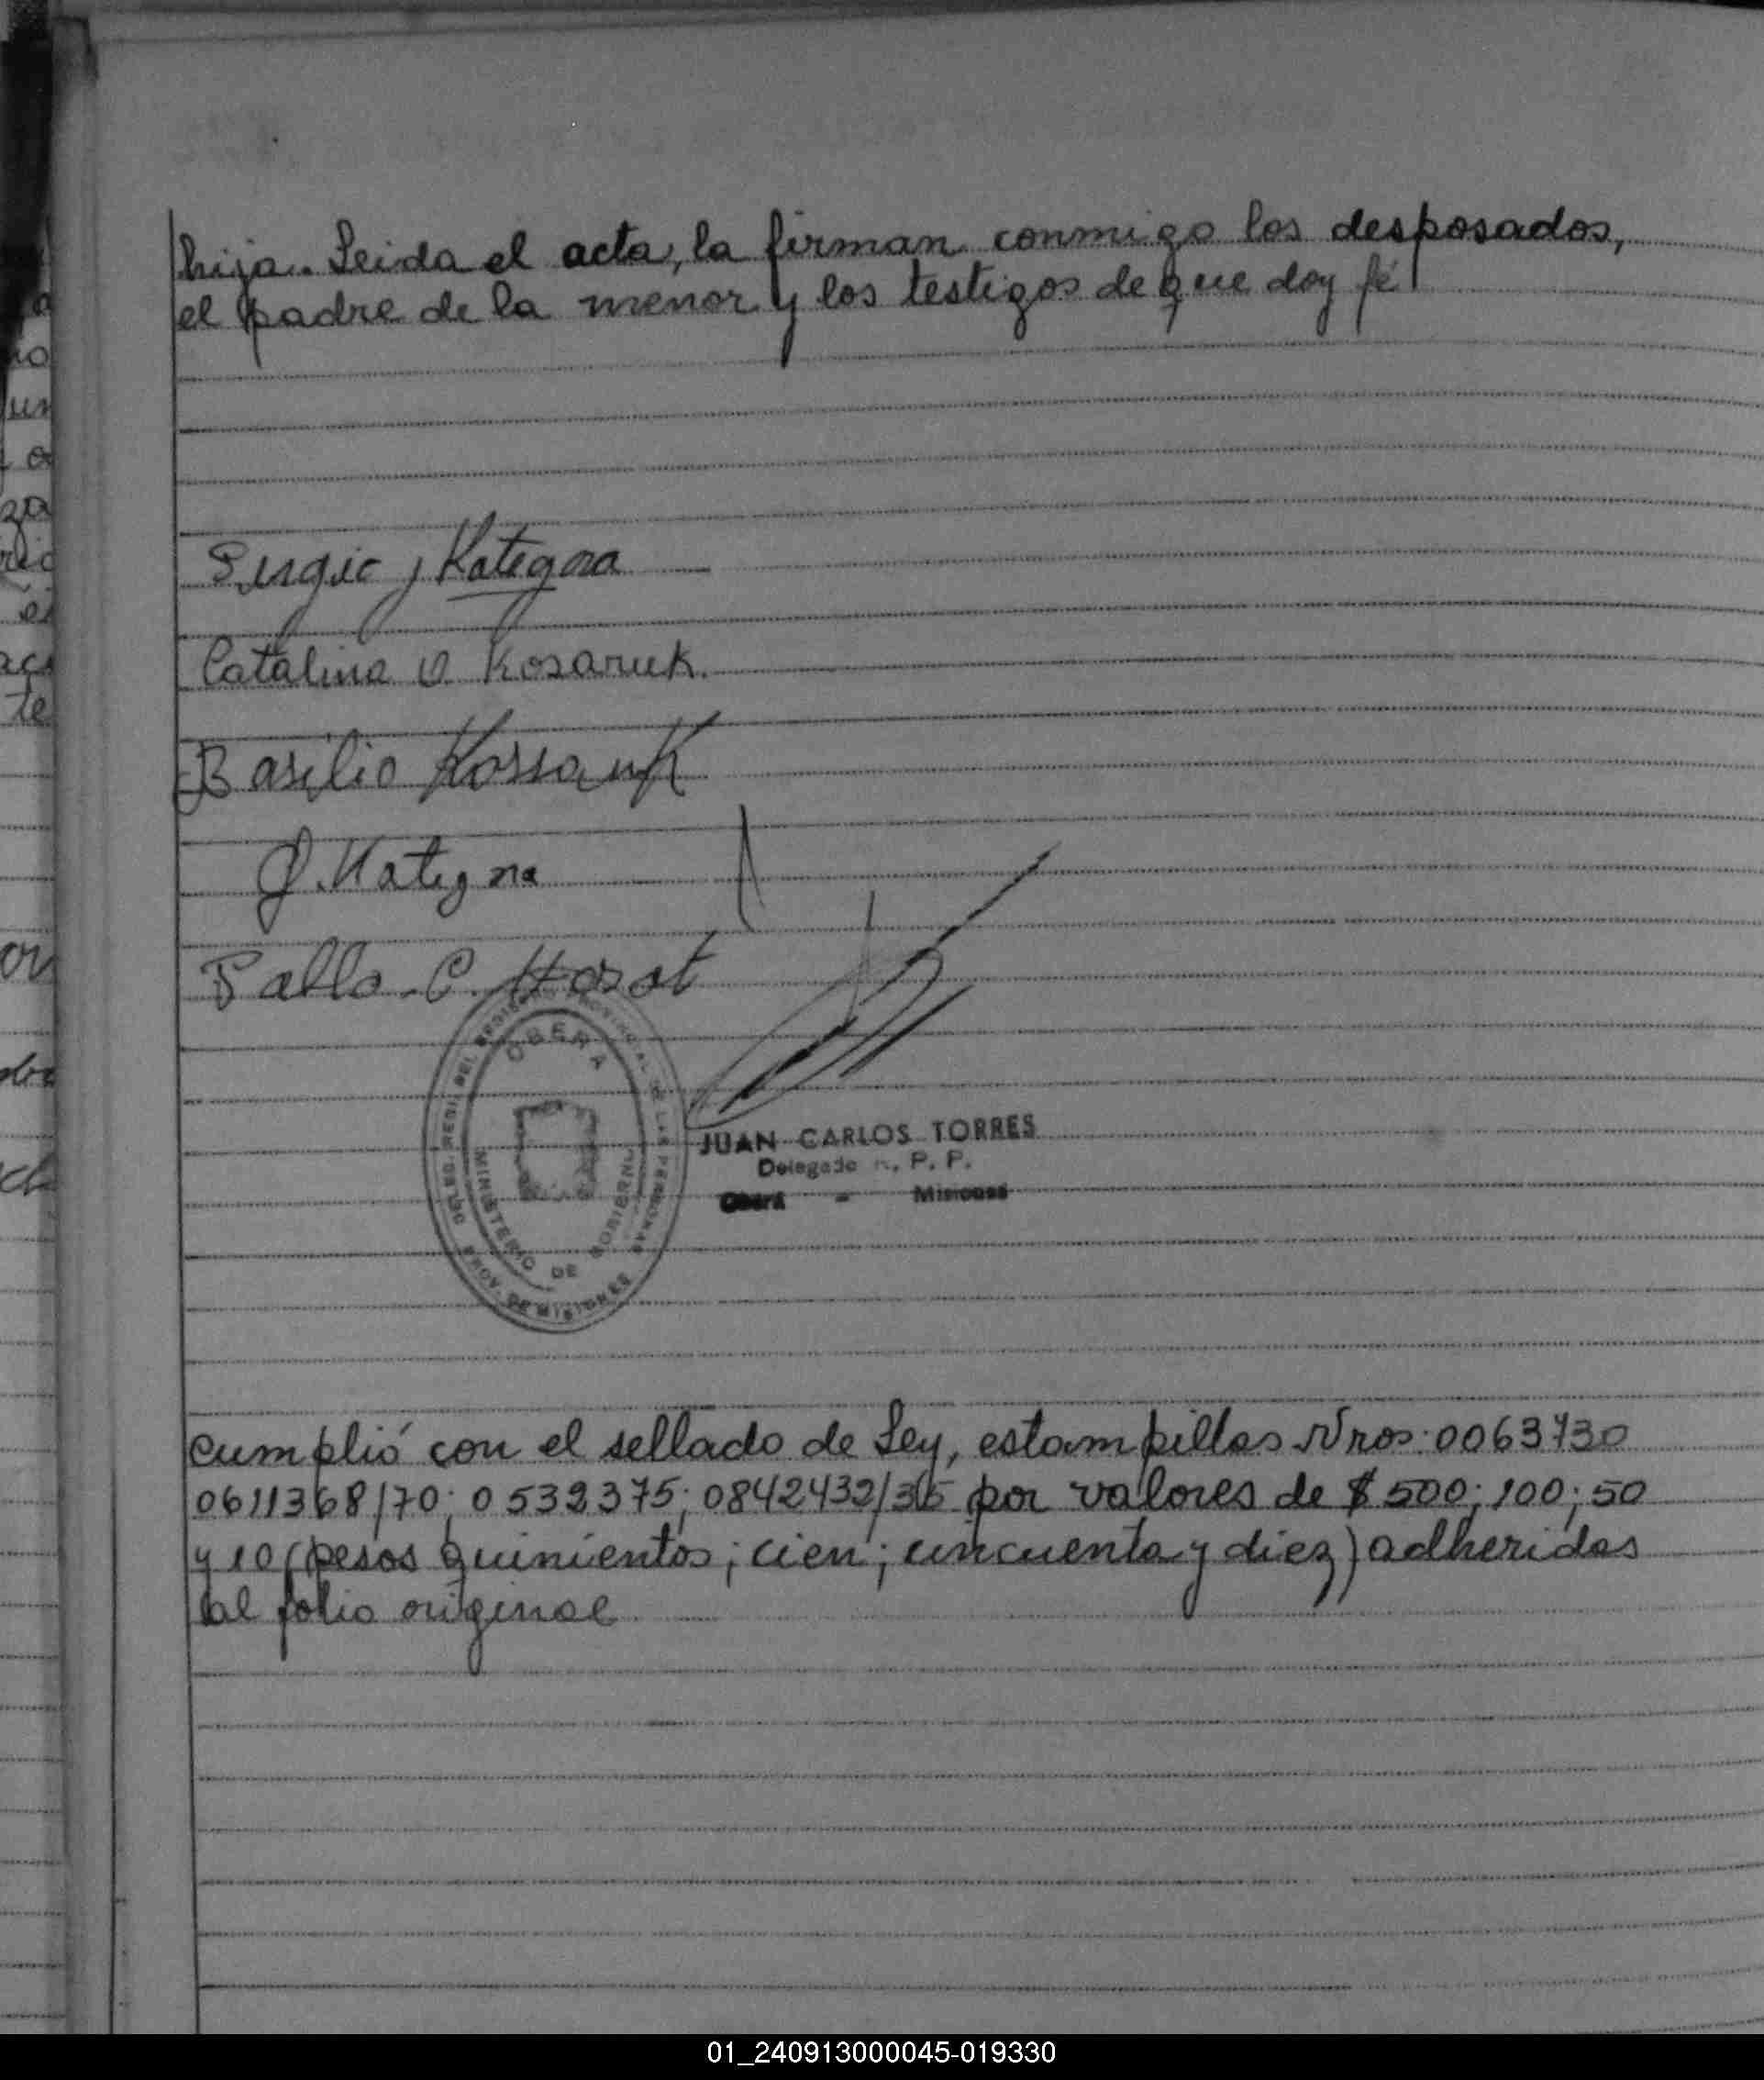 hija. Leida el acta, la firman conmigo los desposados,
el padre de la menor y los testigos de que doy fé
Sergio J Kategora
Catalina O Kosaruk.
Basilio Kossaruk
J. Kategna
Pablo C.
OBERA
MINISTERIO DE GOBIERNO
PROV. DE MISIONES
JUAN CARLOS TORRES
Delegado R. P. P.
Oberá - Misiones
cumplió con el sellado de Ley, estampillas Nros. 0063730
0611368/70; 0532375; 0842432/35 por valores de $ 500; 100; 50
y 10 (pesos quinientos; cien; cincuenta y diez) adheridas
al folio original
01_240913000045-019330